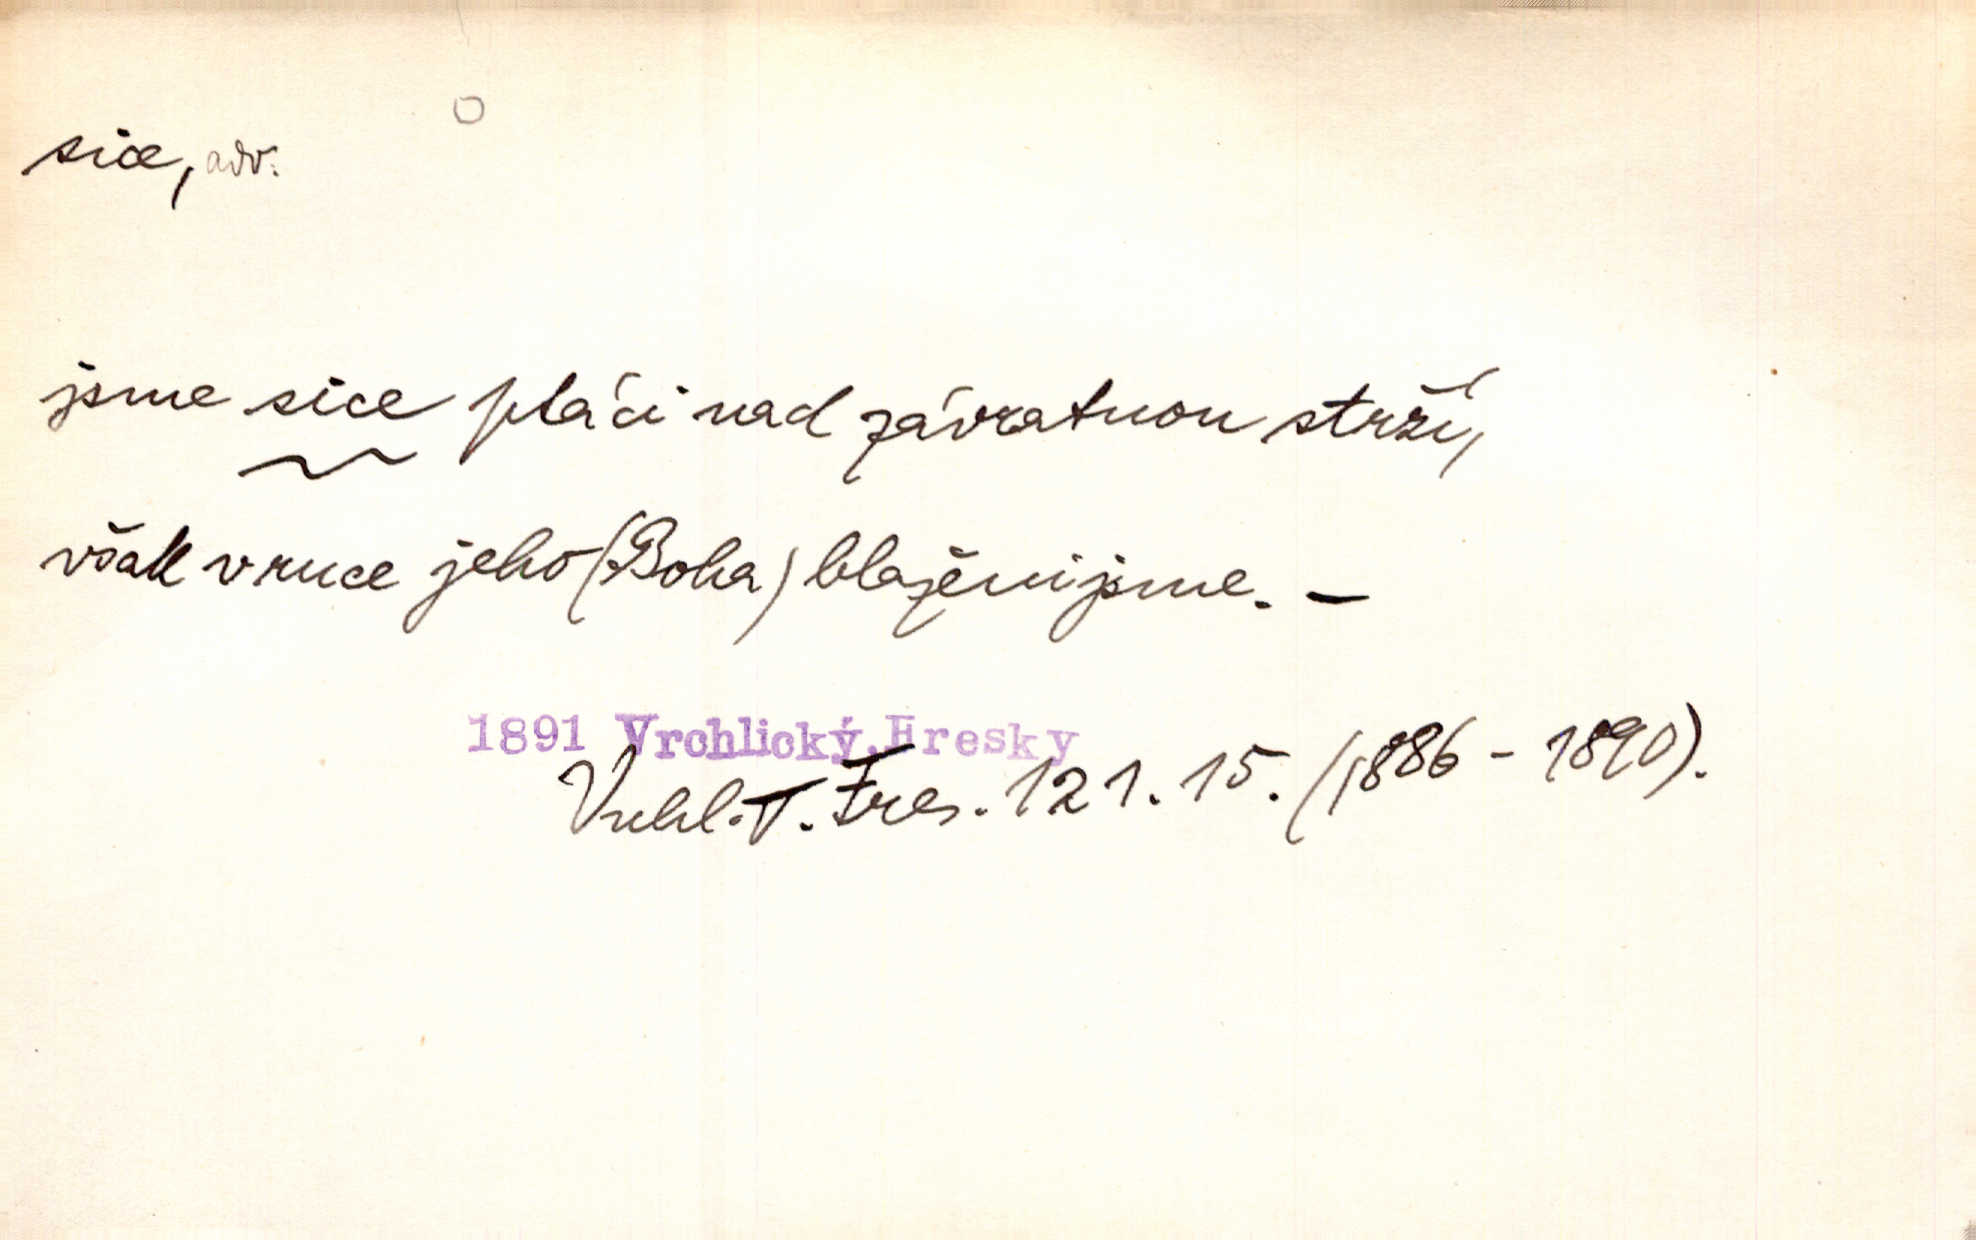 sice, adv.
jsme sice ptáci nad závratnou strží,
však v ruce jeho (Boha) blaženi jsme. –
1891 Vrchlický, Fresky
Vrchl. T. Fres. 121. 15. (1886 – 1890).